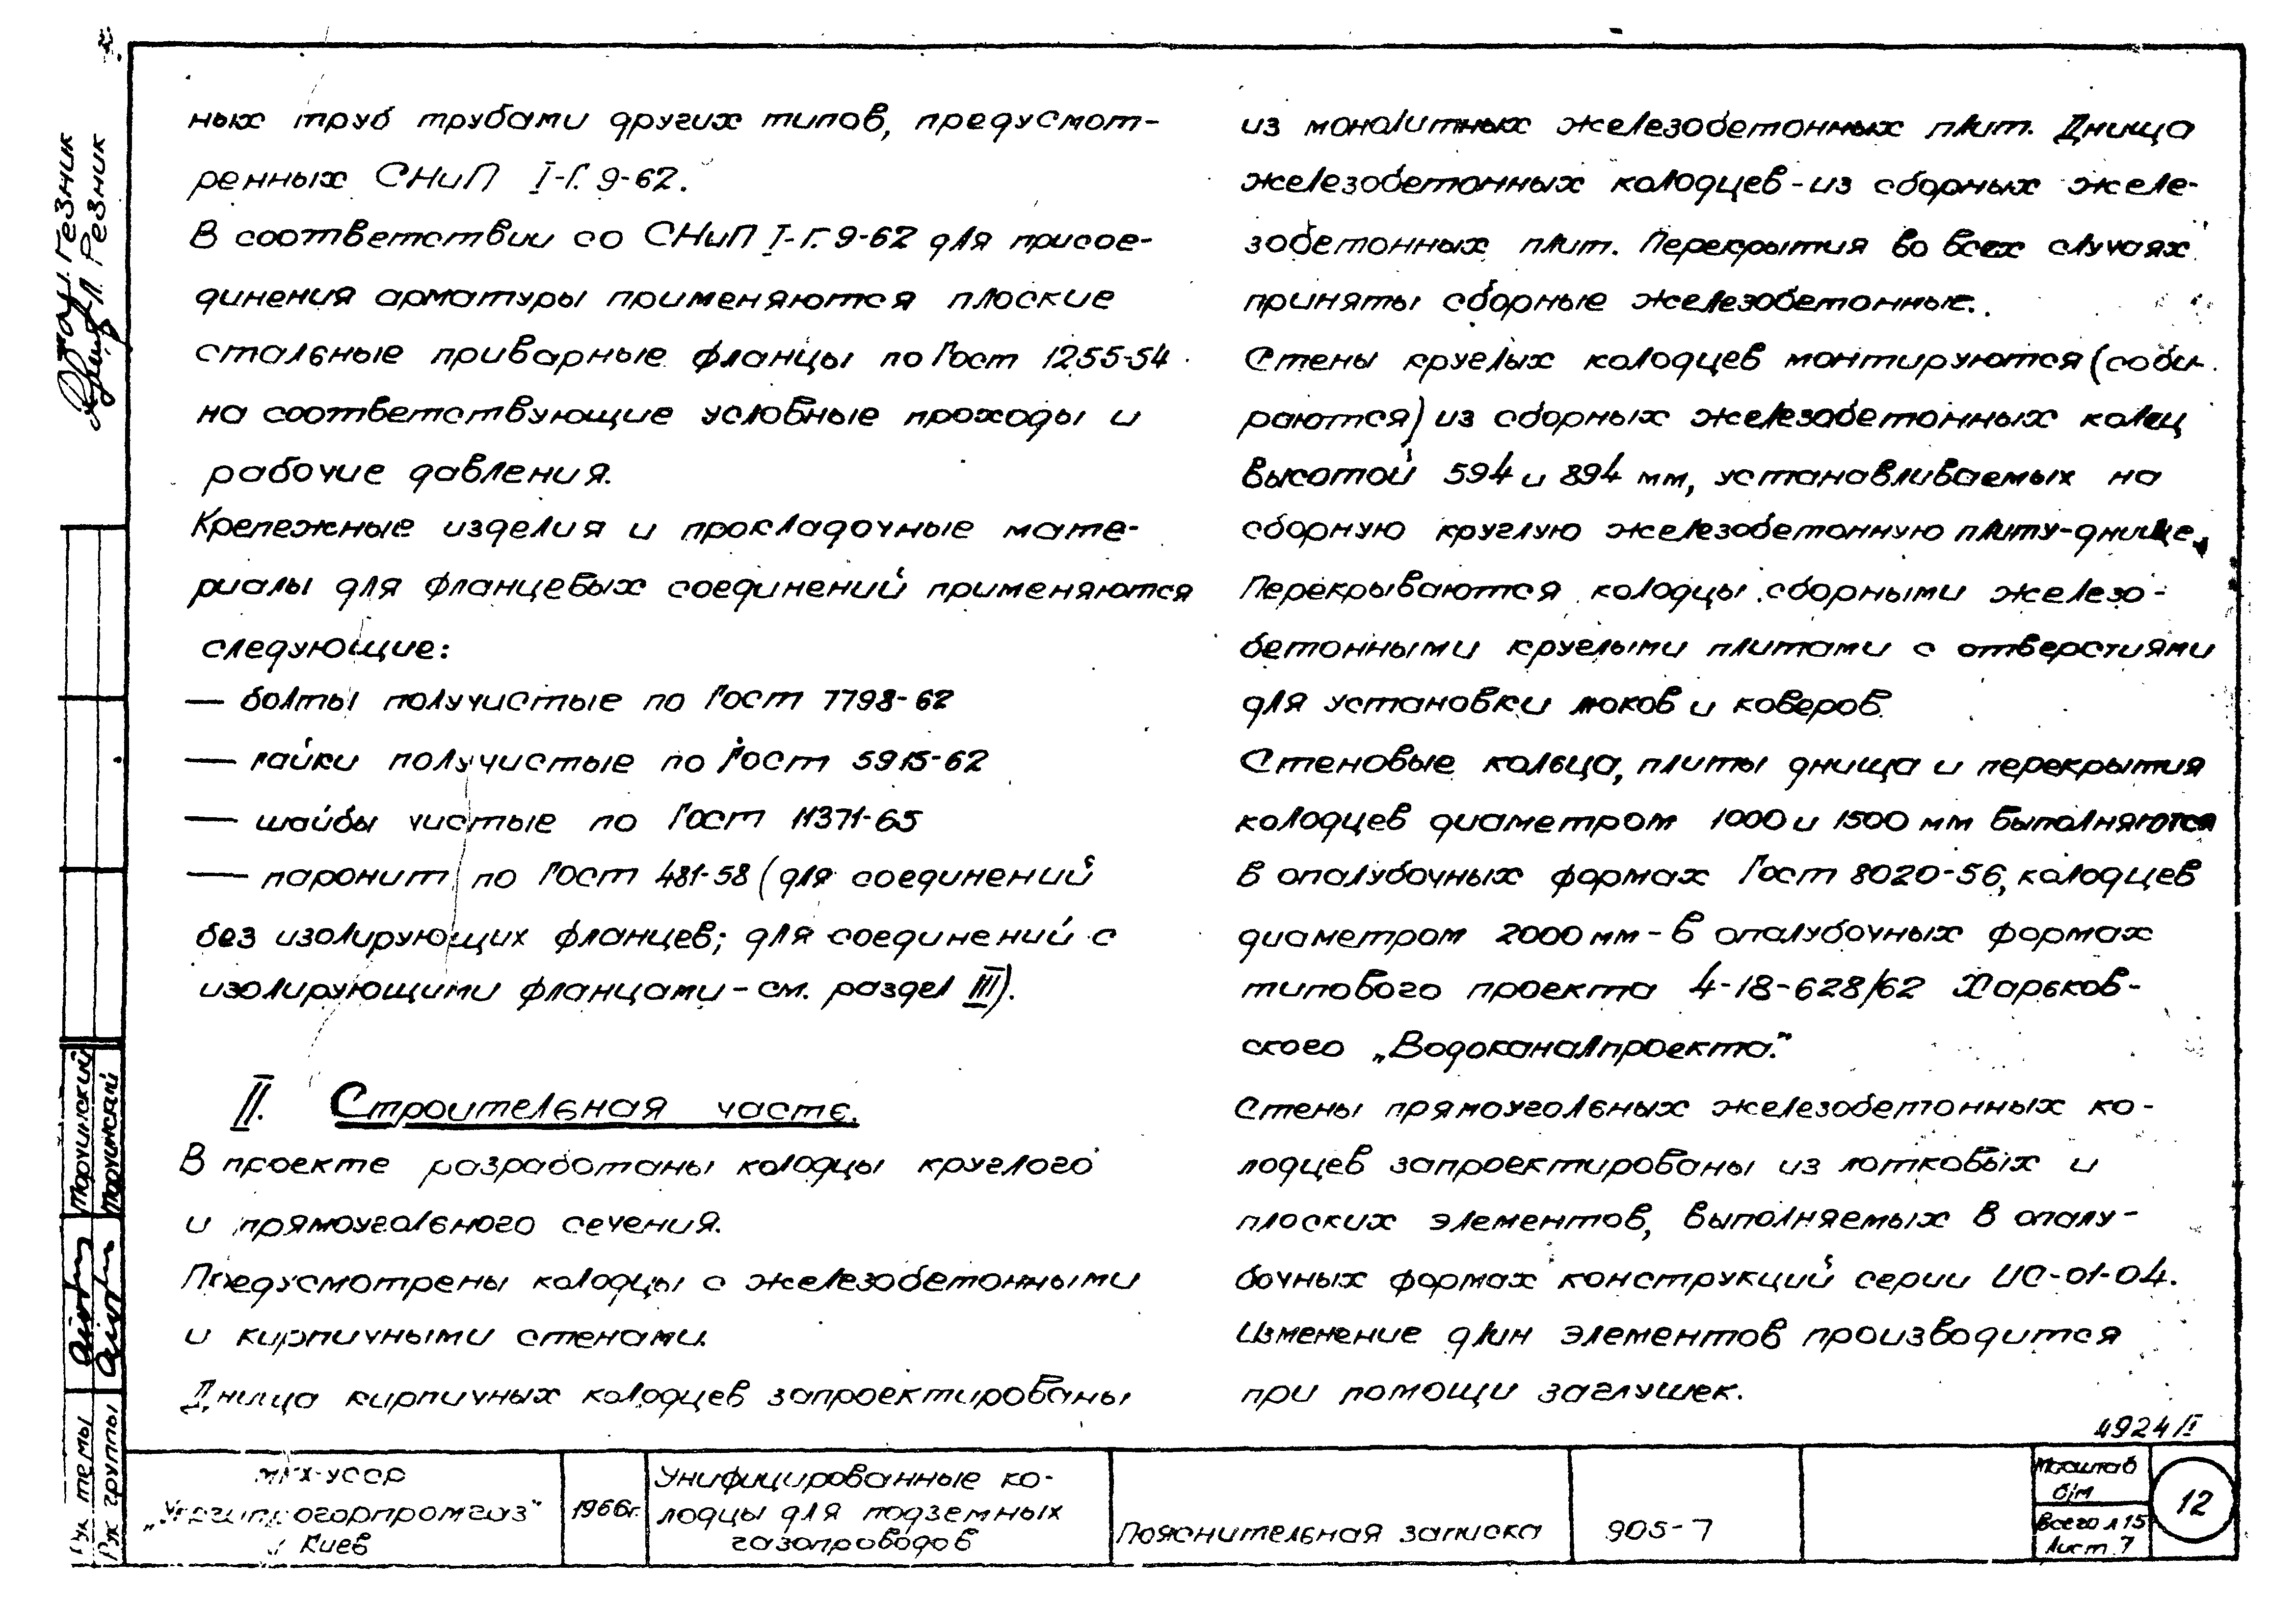 ных труб трубами других типов, предусмот-
ренных СНиП I-Г. 9-62.
В соответствии со СНиП I-Г. 9-62 для присое-
динения арматуры применяются плоские
стальные приварные фланцы по Гост 1255-54
на соответствующие условные проходы и
рабочие давления.
Крепежные изделия и прокладочные мате-
риалы для фланцевых соединений применяются
следующие:
— болты получистые по Гост 7798-62
— гайки получистые по Гост 5915-62
— шайбы чистые по Гост 11371-65
— паронит по Гост 481-58 (для соединений
без изолирующих фланцев; для соединений с
изолирующими фланцами - см. раздел III).
II. Строительная часть.
В проекте разработаны колодцы круглого
и прямоугольного сечения.
Предусмотрены колодцы с железобетонными
и кирпичными стенами.
Днища кирпичных колодцев запроектированы
из монолитных железобетонных плит. Днища
железобетонных колодцев - из сборных желе-
зобетонных плит. Перекрытия во всех случаях
приняты сборные железобетонные.
Стены круглых колодцев монтируются (соби-
раются) из сборных железобетонных колец
высотой 594 и 894 мм, устанавливаемых на
сборную круглую железобетонную плиту-днище.
Перекрываются колодцы сборными железо-
бетонными круглыми плитами с отверстиями
для установки люков и коверов.
Стеновые кольца, плиты днища и перекрытия
колодцев диаметром 1000 и 1500 мм выполняются
в опалубочных формах Гост 8020-56, колодцев
диаметром 2000 мм - в опалубочных формах
типового проекта 4-18-628/62 Харьков-
ского „Водоканалпроекта."
Стены прямоугольных железобетонных ко-
лодцев запроектированы из лотковых и
плоских элементов, выполняемых в опалу-
бочных формах конструкций серии ИС-01-04.
Изменение длин элементов производится
при помощи заглушек.
4924/I
МКХ-УССР
„Укргипрогорпромгаз"
Киев
1966г.
Унифицированные ко-
лодцы для подземных
газопроводов
Пояснительная записка
905-7
Масштаб
б/м
Всего л 15
Лист 7
12
Рук темы
Рук группы
Торчинский
Торчинский
Резник
Резник